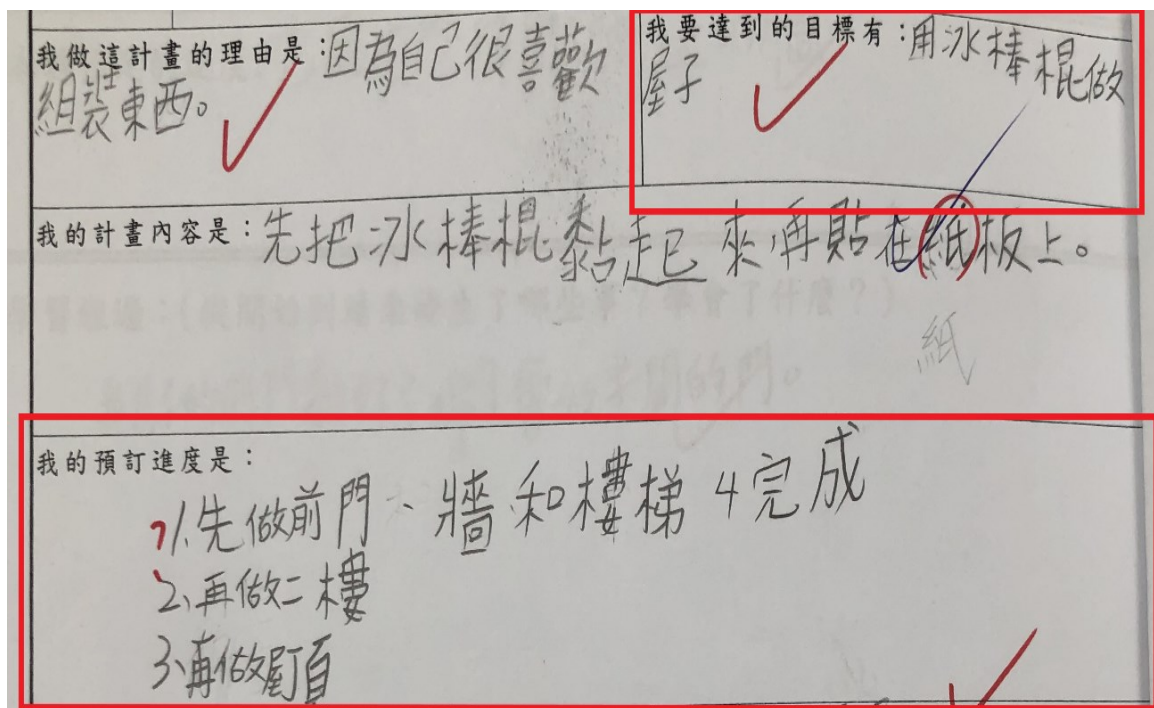 我做這計畫的理由是：因為自己很喜歡
組裝東西。
我要達到的目標有：用冰棒棍做
屋子
我的計畫內容是：先把冰棒棍黏起來，再貼在紙板上。
紙
我的預訂進度是：
1.先做前門、牆和樓梯 4完成
2、再做二樓
3、再做屋頂